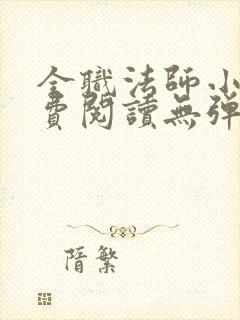 全職法師小
費閱讀無彈
隋繁